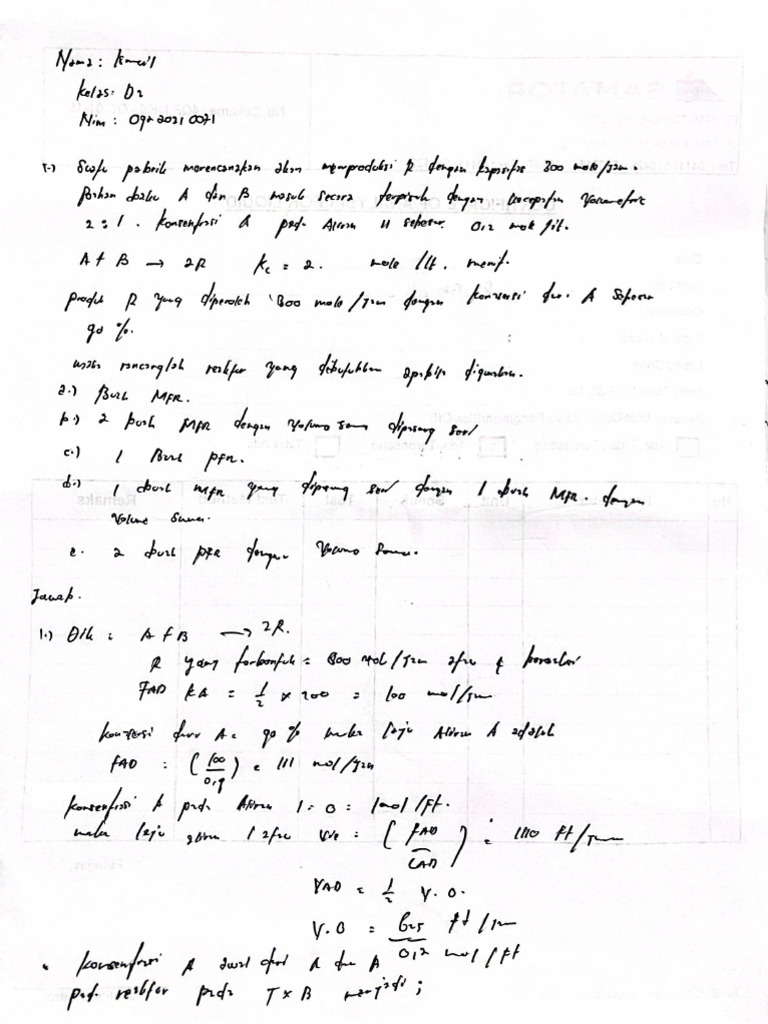 Nama : Kamil
Kelas : D2
Nim : 092021 0071
1.) Suatu pabrik merencanakan akan memproduksi R dengan kapasitas 300 mole/jam.
Bahan baku A dan B masuk secara terpisah dengan kecepatan Volumetrik
2 : 1 . Konsentrasi A pada Aliran 11 sebesar 0,2 mol /lt.
A + B → 2R K = 2. mole /lt. menit.
produk R yang diperoleh 300 mole/jam dengan konversi dari A Sebesar
90 %.
rancanglah reaktor yang dibutuhkan apabila digunakan.
a.) Buah MFR.
b.) 2 buah MFR dengan Volume Sama dipasang Seri
c.) 1 Buah PFR.
d.) 1 buah MFR yang dipasang seri dengan 1 buah MFR. dengan
Volume Sama.
e. 2 buah PFR dengan Volume Sama.
Jawab.
1.) Dik : A + B → 2R.
R yang terbentuk = 800 mol/jam atau
FAD XA = 1/2 x 200 = 100 mol/jam
konversi dari A = 90 % maka laju Aliran A adalah
FAD = (100/0,9) = 111 mol/jam
Konsentrasi A pada Aliran 1 = 0 = 1 mol/ft.
maka laju aliran 1 = (FAD/CAD) = 1110 ft/jam
VAD = 1/2 V.O.
V.O = ft/jam
• Konsentrasi A awal dari A dan A 0,2 mol/ft
pada reaktor pada T x B menjadi ;